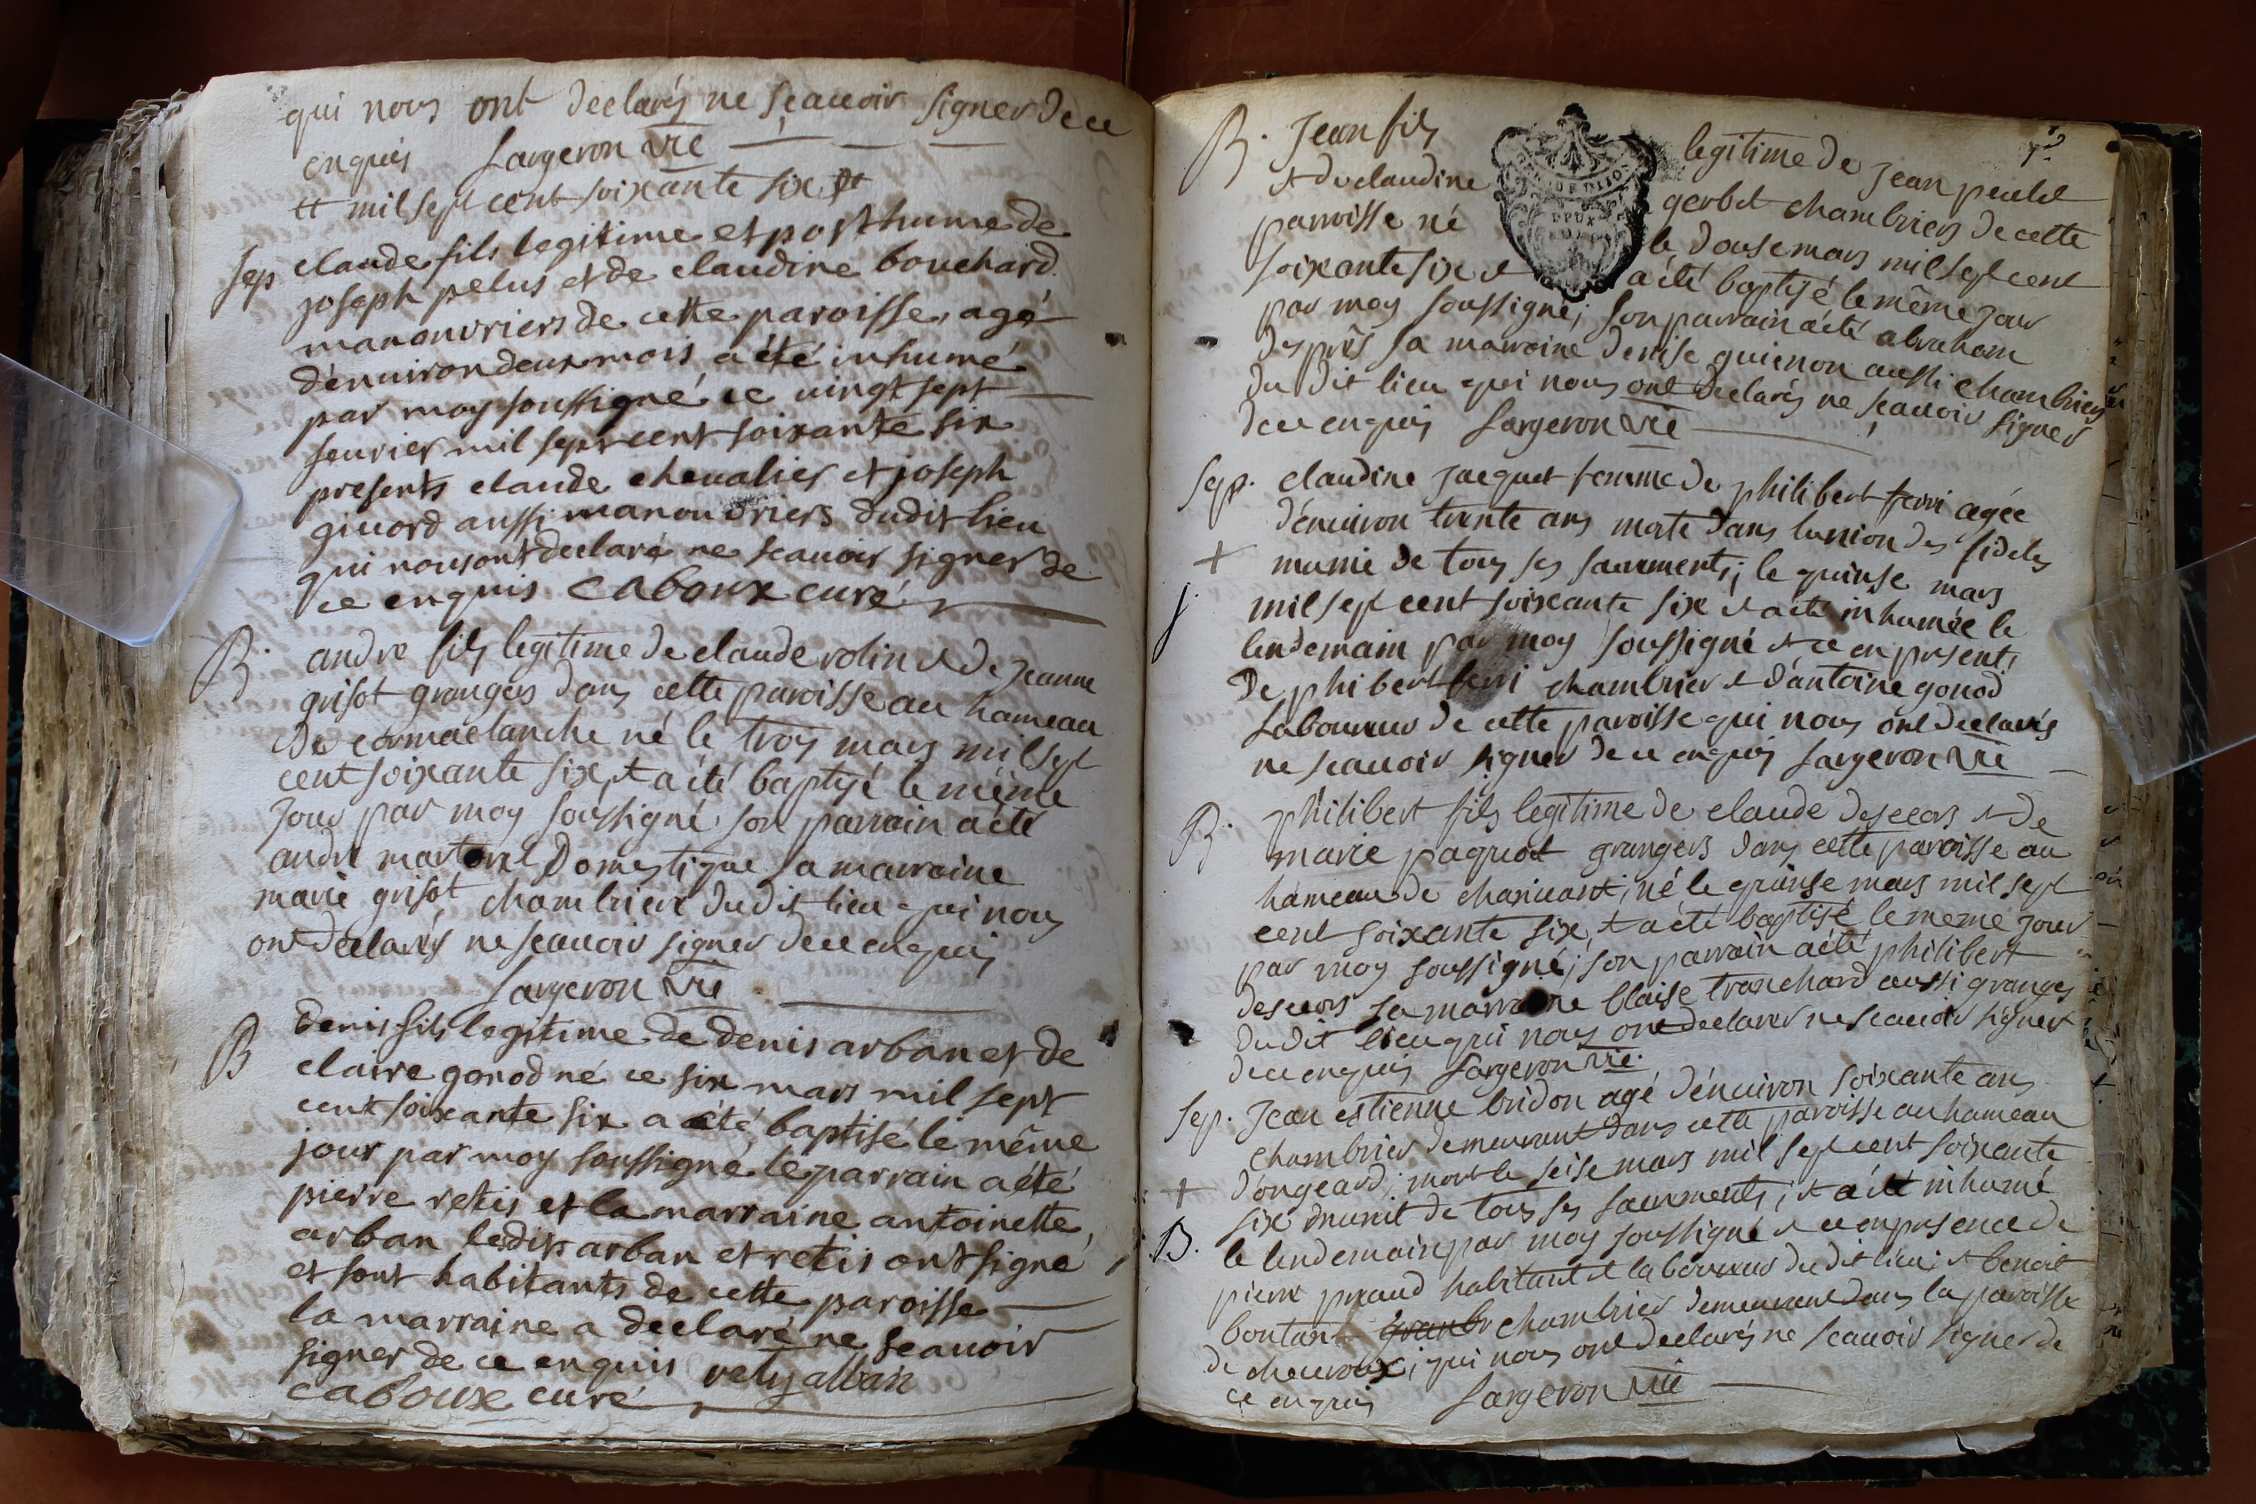 qui nous ont declarés ne sçauoir signer de ce
enquis Sargeron vic
et mil sept cent soixante six
Sep claude fils legitime et posthume de
joseph pelus et de claudine bouchard
manouvriers de cette paroisse, agé
d'enuiron deux mois a été inhumé
par moy soussigné ce vingt sept
feurier mil sept cent soixante six
presents claude cheualier et joseph
giuord aussi manouvriers dudit lieu
qui nous ont declaré ne scauoir signer de
ce enquis caboux curé
B. andre fils legitime de claude rolin et de Jeanne
grisot grangers dans cette paroisse au hameau
de cormaclanche né le troys mars mil sept
cent soixante six, et a été baptisé le même
jour par moy soussigné, son parrain a été
andre domestique sa marraine
marie grisot chambriere dudit lieu qui nous
ont declarés ne sçauoir signer de ce enquis
Sargeron vic
B denis fils legitime de denis arban et de
claire gonod né ce six mars mil sept
cent soixante six a été baptisé le même
jour par moy soussigné le parrain a été
pierre retis et la marraine antoinette
arban ledit arban et retis ont signé
et sont habitants de cette paroisse
la marraine a declaré ne scauoir
signer de ce enquis rety alban
caboux curé
B. Jean fils legitime de Jean
et de claudine gerbet chambriers de cette
parroisse né le douse mars mil sept cent
soixante six et a été baptisé le même jour
par moy soussigné; son parrain a été abraham
desprès sa marraine denise guienon aussi chambriers
du dit lieu qui nous ont declarés ne sçauoir signer
de ce enquis Sargeron vic
Sep. claudine jacquet femme de philibert ferri agée
d'enuiron trente ans morte dans lunion des fideles
munie de tous ses sacrements; le quinse mars
mil sept cent soixante six et a été inhumée le
lendemain par moy soussigné et ce en present,
de phibert ferri chambrier et d'antoine gonod
laboureur de cette paroisse qui nous ont declarés
ne scauoir signer de ce enquis Sargeron vic
B. philibert fils legitime de claude descors et de
marie paquet grangers dans cette paroisse au
hameau de chariuant; né le quinse mars mil sept
cent soixante six, et a été baptisé le meme jour
par moy soussigné; son parrain a été philibert
descors sa marraine blaise tranchard aussi granger
du dit lieu qui nous ont declarés ne scauoir signer
de ce enquis Sargeron vic.
Sep. Jean estienne bridon agé d'enuiron soixante ans
chambrier demeurant dans cette paroisse au hameau
d'ongeard; mort le seise mars mil sept cent soixante
six munit de tous ses sacrements; et a été inhumé
B. le lendemain par moy soussigné et ce en presence de
pierre habitant et laboureur du dit lieu; et benoit
boutan chambrier demeurant dans la paroisse
de cheuroux; qui nous ont declarés ne scauoir signer de
ce enquis Sargeron vic